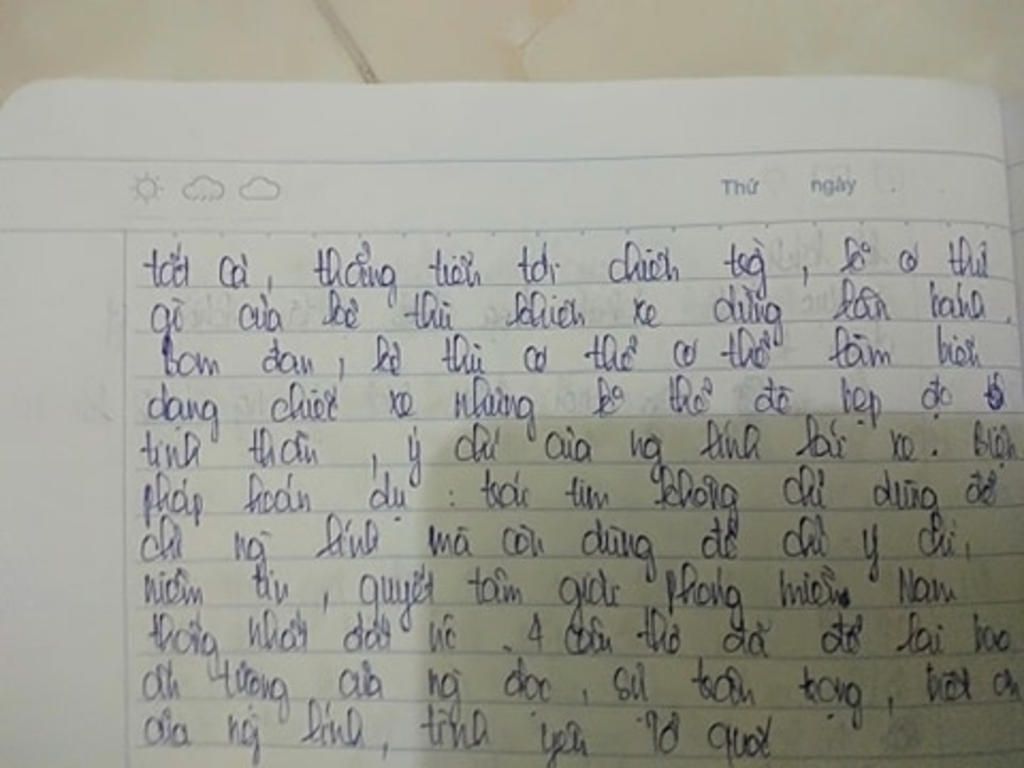 Thứ ngày
tất cả, thẳng tiến tới chiến trg, ko có thứ
gì của kẻ thù khiến xe dừng lăn bánh.
Bom đạn, kẻ thù có thể có thể làm biến
dạng chiếc xe nhưng ko thể đè bẹp đc
tinh thần, ý chí của ng lính lái xe. Biện
pháp hoán dụ: trái tim không chỉ dùng để
chỉ ng lính mà còn dùng để chỉ ý chí,
niềm tin, quyết tâm giải phóng miền Nam
thống nhất đất nc. 4 câu thơ đã để lại bao
ấn tượng của ng đọc, sự trân trọng, biết ơn
của ng lính, tình yêu Tổ quốc